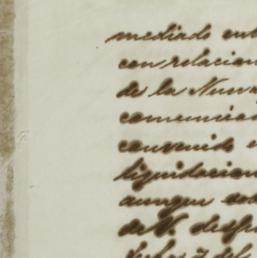 mediado ent
con relacion
de la Nunc
comunica
convenido
liquidacion
aunque
de V. despu